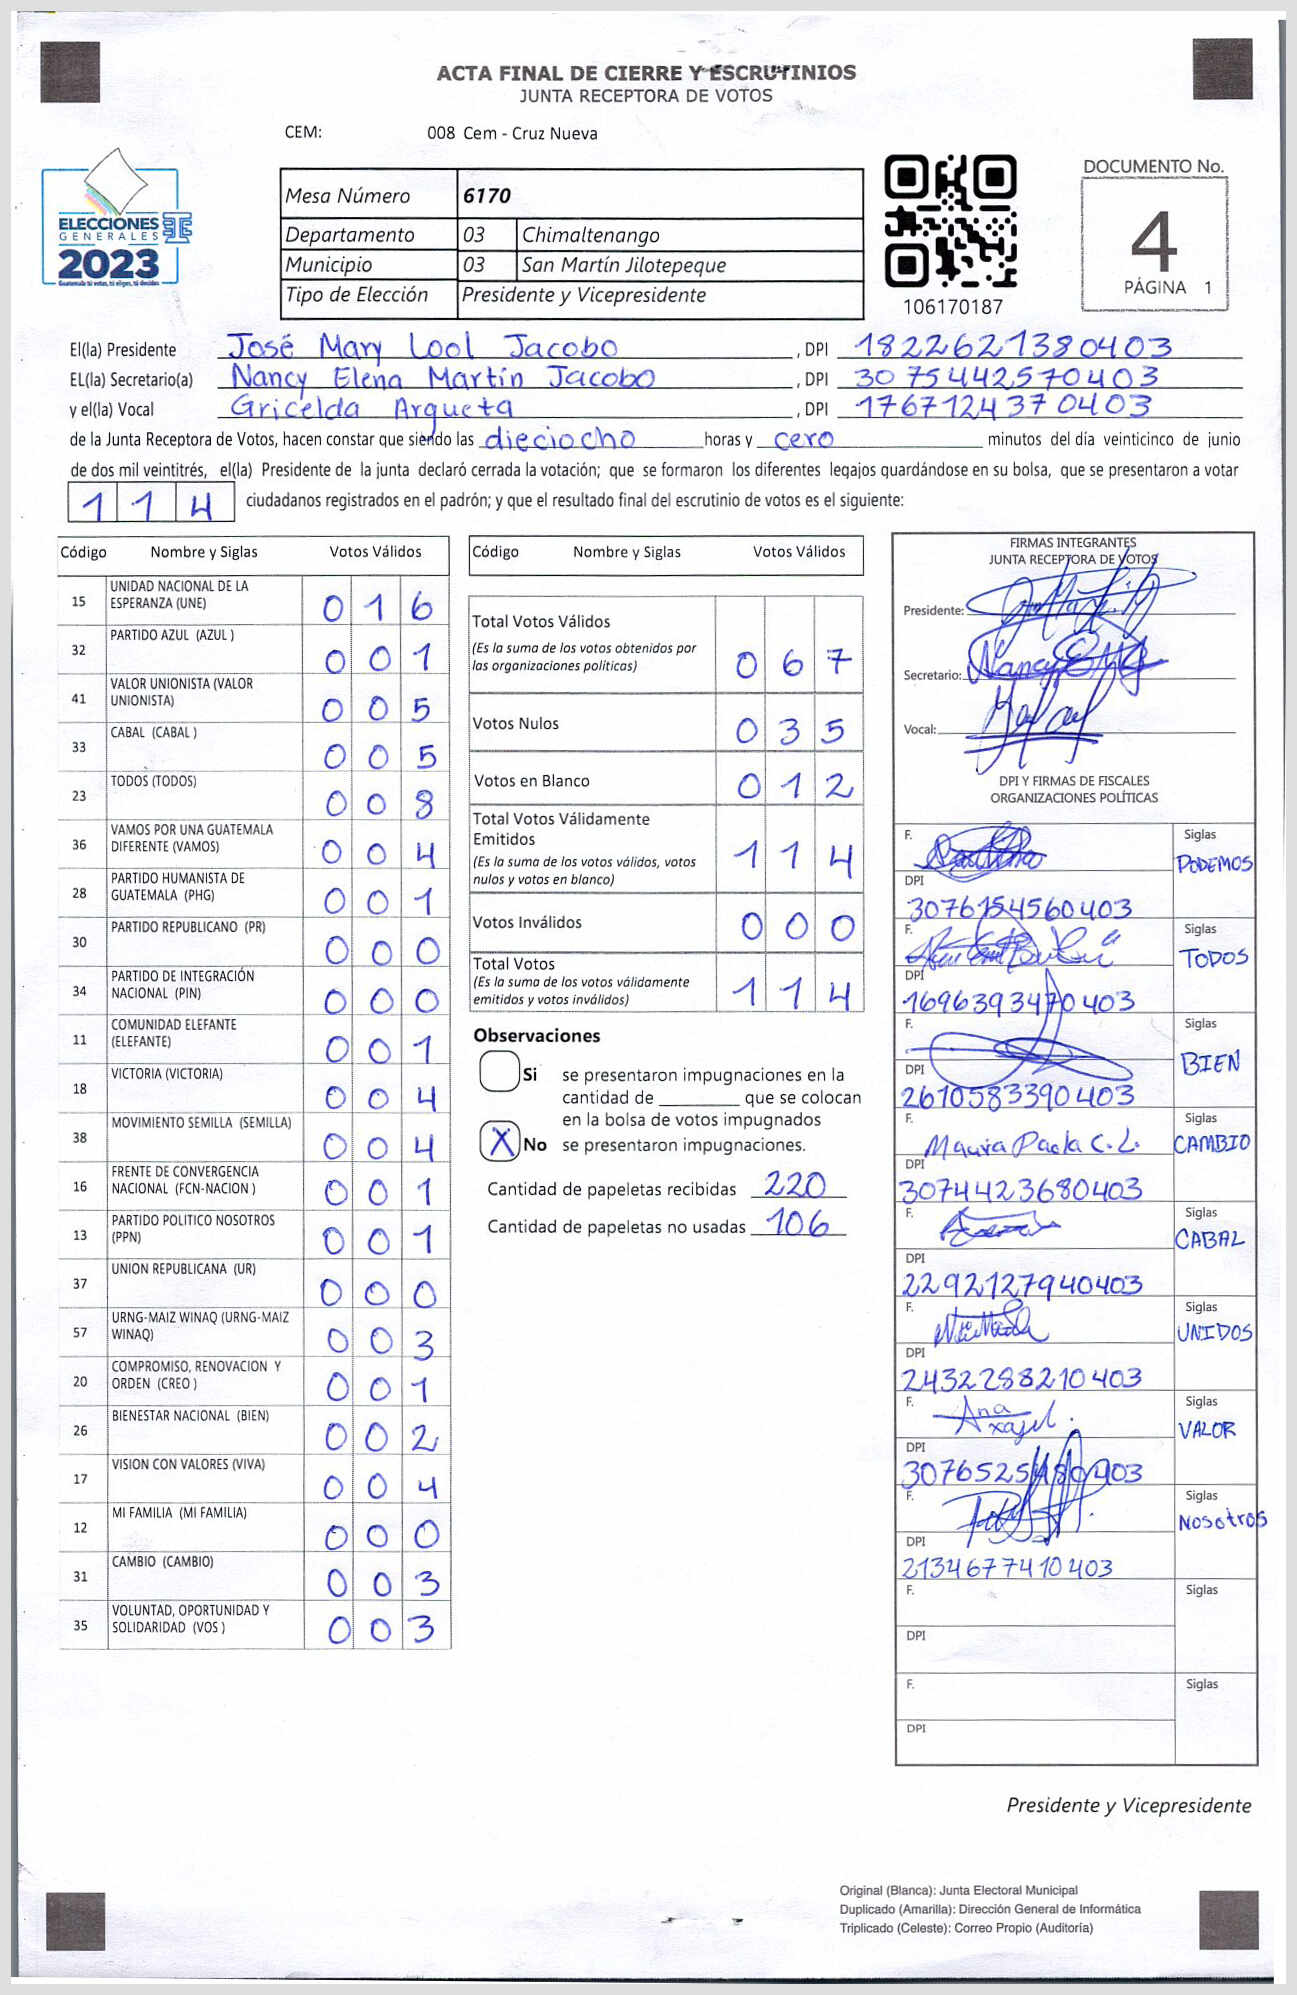 ACTA FINAL DE CIERRE Y ESCRUTINIOS
JUNTA RECEPTORA DE VOTOS
CEM: 008 Cem - Cruz Nueva
ELECCIONES
GENERALES
2023
Guatemala tú votas, tú eliges, tú decides
Mesa Número 6170
Departamento 03 Chimaltenango
Municipio 03 San Martín Jilotepeque
Tipo de Elección Presidente y Vicepresidente
106170187
DOCUMENTO No.
4
PÁGINA 1
El(la) Presidente José Mary Lool Jacobo , DPI 1822621380403
EL(la) Secretario(a) Nancy Elena Martín Jacobo , DPI 3075442570403
y el(la) Vocal Gricelda Argueta , DPI 1767124370403
de la Junta Receptora de Votos, hacen constar que siendo las dieciocho horas y cero minutos del día veinticinco de junio
de dos mil veintitrés, el(la) Presidente de la junta declaró cerrada la votación; que se formaron los diferentes legajos quardándose en su bolsa, que se presentaron a votar
114 ciudadanos registrados en el padrón; y que el resultado final del escrutinio de votos es el siguiente:
Código Nombre y Siglas Votos Válidos
15 UNIDAD NACIONAL DE LA ESPERANZA (UNE) 016
32 PARTIDO AZUL (AZUL ) 001
41 VALOR UNIONISTA (VALOR UNIONISTA) 005
33 CABAL (CABAL ) 005
23 TODOS (TODOS) 008
36 VAMOS POR UNA GUATEMALA DIFERENTE (VAMOS) 004
28 PARTIDO HUMANISTA DE GUATEMALA (PHG) 001
30 PARTIDO REPUBLICANO (PR) 000
34 PARTIDO DE INTEGRACIÓN NACIONAL (PIN) 000
11 COMUNIDAD ELEFANTE (ELEFANTE) 001
18 VICTORIA (VICTORIA) 004
38 MOVIMIENTO SEMILLA (SEMILLA) 004
16 FRENTE DE CONVERGENCIA NACIONAL (FCN-NACION ) 001
13 PARTIDO POLITICO NOSOTROS (PPN) 001
37 UNION REPUBLICANA (UR) 000
57 URNG-MAIZ WINAQ (URNG-MAIZ WINAQ) 003
20 COMPROMISO, RENOVACION Y ORDEN (CREO ) 001
26 BIENESTAR NACIONAL (BIEN) 002
17 VISION CON VALORES (VIVA) 004
12 MI FAMILIA (MI FAMILIA) 000
31 CAMBIO (CAMBIO) 003
35 VOLUNTAD, OPORTUNIDAD Y SOLIDARIDAD (VOS ) 003
Código Nombre y Siglas Votos Válidos
Total Votos Válidos
(Es la suma de los votos obtenidos por
las organizaciones políticas) 067
Votos Nulos 035
Votos en Blanco 012
Total Votos Válidamente
Emitidos
(Es la suma de los votos válidos, votos
nulos y votos en blanco) 114
Votos Inválidos 000
Total Votos
(Es la suma de los votos válidamente
emitidos y votos inválidos) 114
Observaciones
Si se presentaron impugnaciones en la
cantidad de ________ que se colocan
en la bolsa de votos impugnados
X No se presentaron impugnaciones.
Cantidad de papeletas recibidas 220
Cantidad de papeletas no usadas 106
FIRMAS INTEGRANTES
JUNTA RECEPTORA DE VOTOS
Presidente:
Secretario: Nancy
Vocal:
DPI Y FIRMAS DE FISCALES
ORGANIZACIONES POLÍTICAS
F. Siglas
PODEMOS
DPI
3076154560403
F. Siglas
TODOS
DPI
1696393470403
F. Siglas
BIEN
DPI
2610583390403
F. Siglas
CAMBIO
DPI
3074423680403
F. Siglas
CABAL
DPI
2292127940403
F. Siglas
UNIDOS
DPI
2432288210403
F. Ana Siglas
VALOR
DPI
F. Siglas
Nosotros
DPI
2134677410403
F. Siglas
DPI
F. Siglas
DPI
Presidente y Vicepresidente
Original (Blanca): Junta Electoral Municipal
Duplicado (Amarilla): Dirección General de Informática
Triplicado (Celeste): Correo Propio (Auditoría)